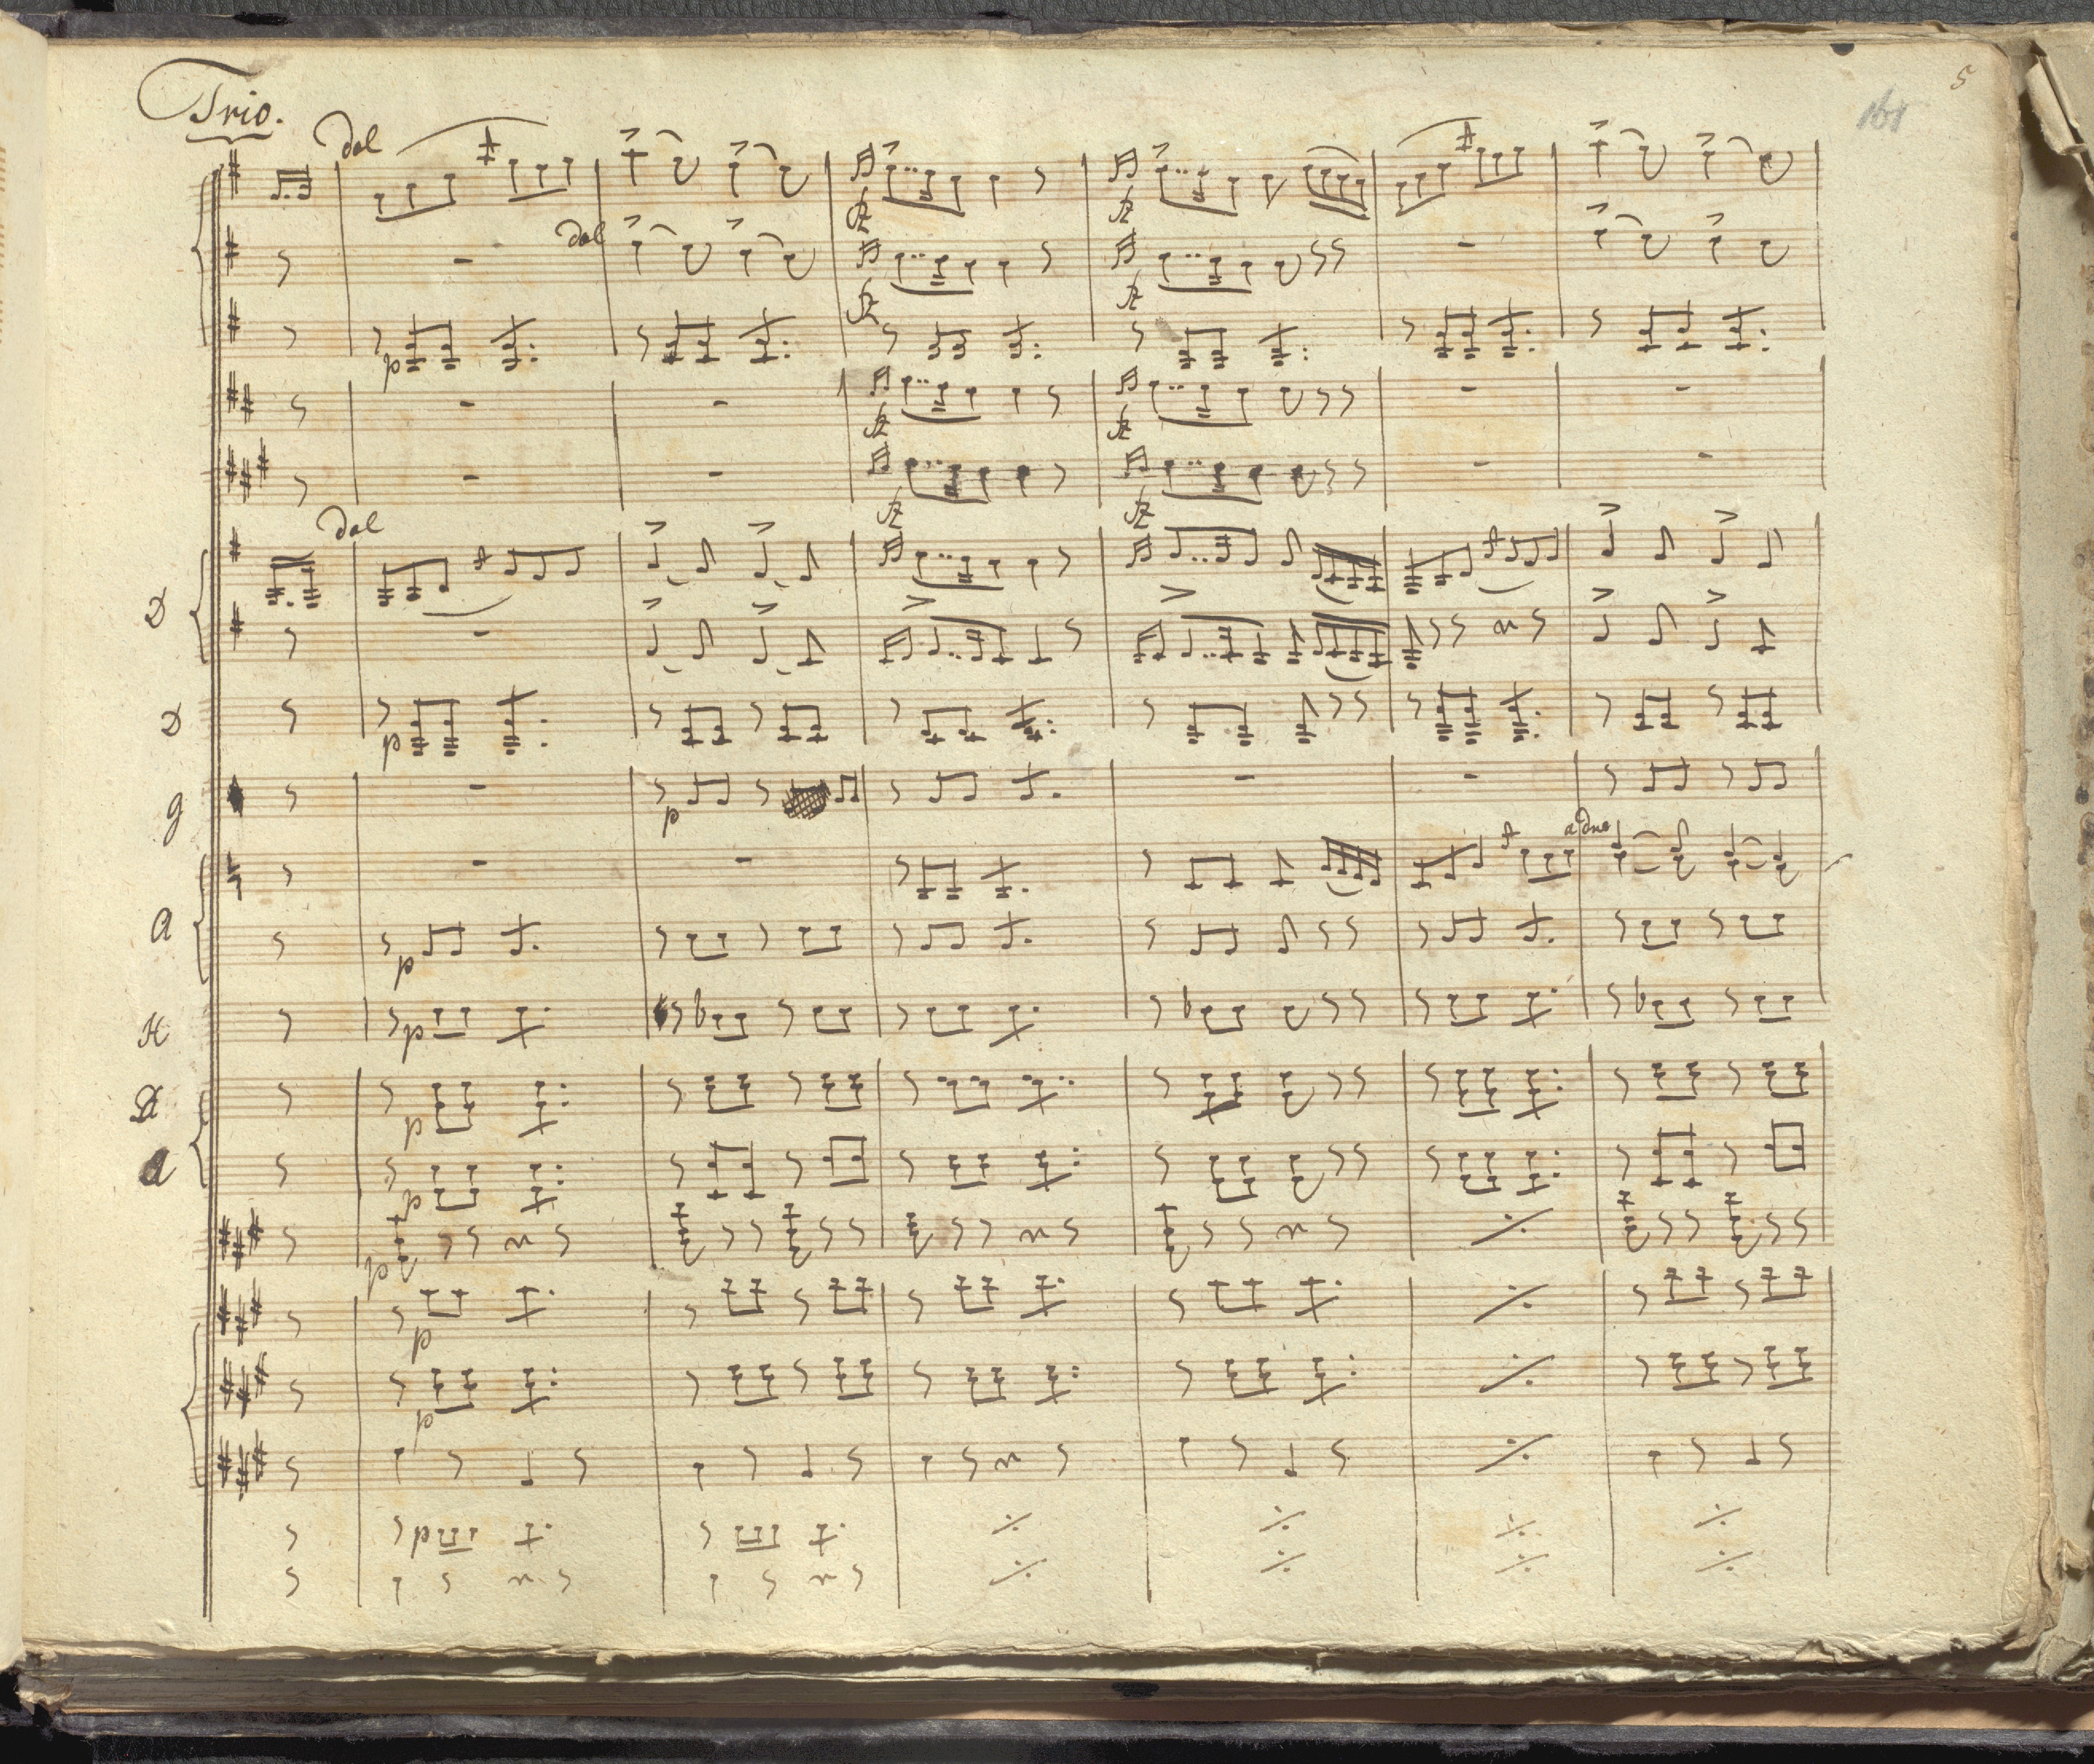 5
161
Trio.
dol
fz fz
dol
fz fz
p
fz fz
fz fz
dol
D
D
p
g
p
a due
A
p
H
p
D
p
A
p
p
p
p
p